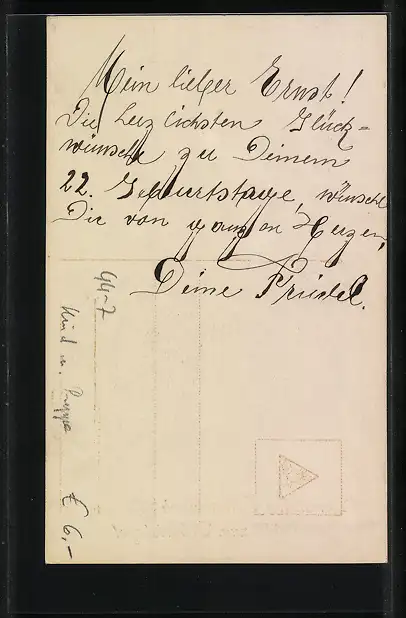 Mein lieber Ernst!
Die herzlichsten Glück=
wünsche zu Deinem
22. Geburtstage, wünscht
Dir von ganzen Herzen,
Deine Friedel.
94-7
Kind u. Puppe
€ 6,-